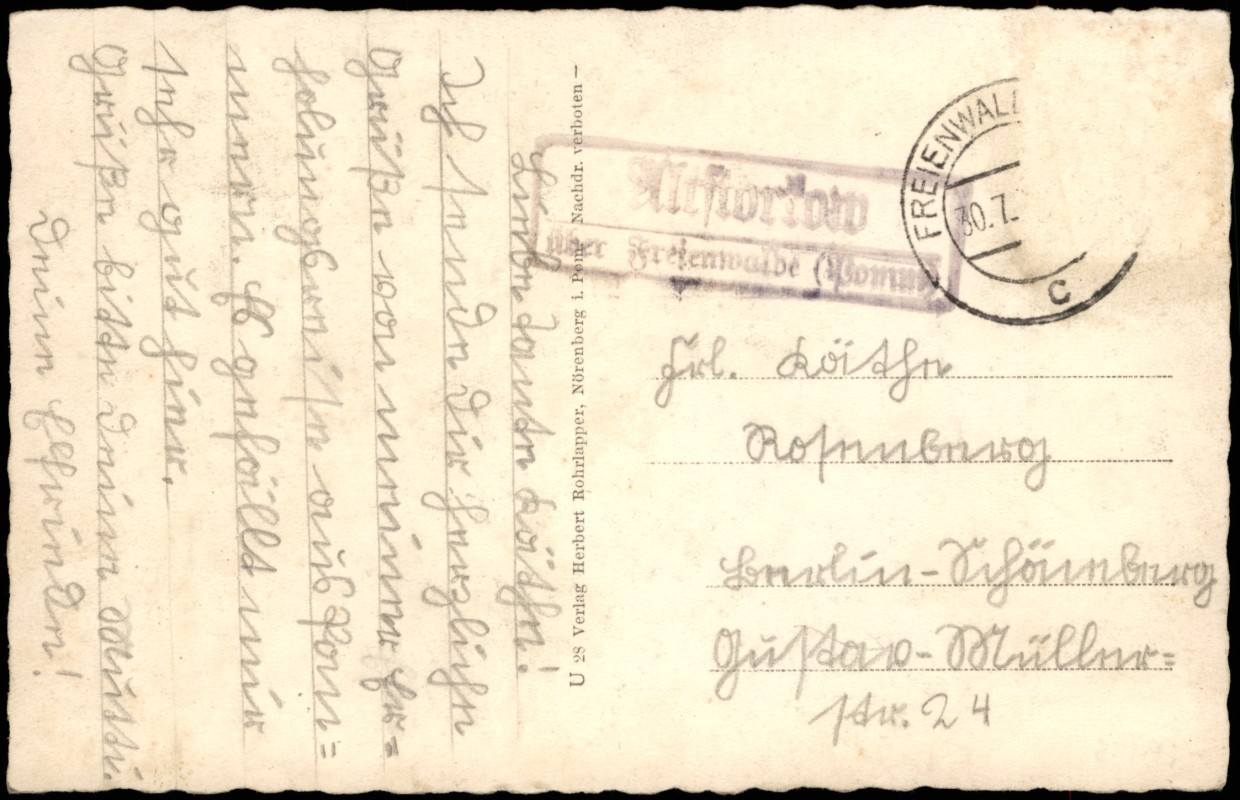 Liebe Tante Käthe!
Ich sende Dir herzliche
Grüße von meiner Er=
holungsreise aus Pom=
mern. Es gefällt mir
sehr gut hier.
Grüße bitte Deine Mutti.
Deine Elfriede!
U 28 Verlag Herbert Rohrlapper, Nörenberg i. Pom. Nachdr. verboten –
Altstorkow
über Freienwalde (Pomm)
FREIENWALD
30.7.
c
Frl. Käthe
Rosenberg
Berlin-Schöneberg
Gustav-Müller=
str. 24